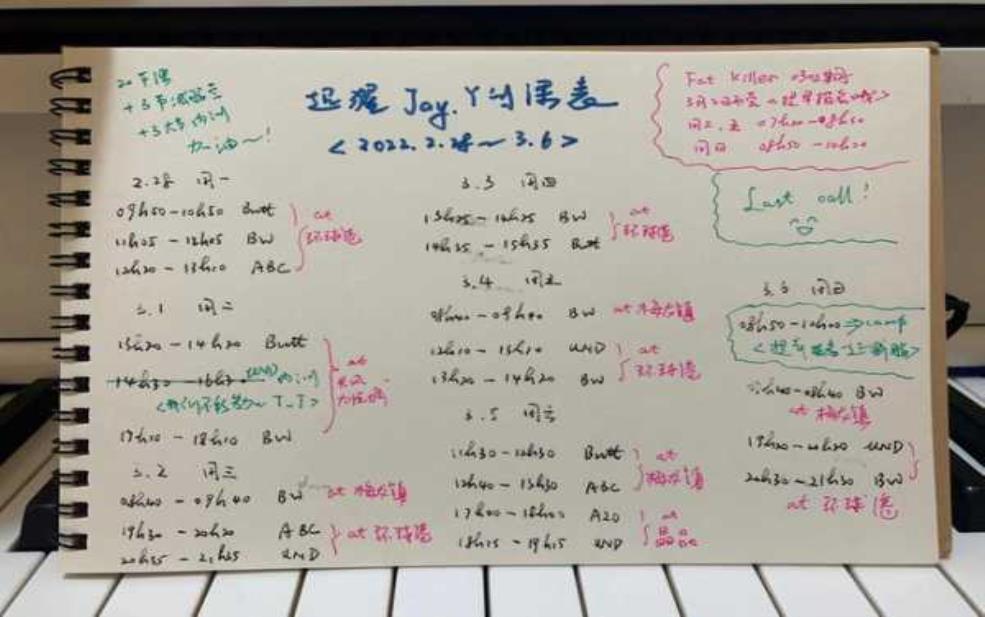 20节课
加油~!
Joy.Y 的课表
< 2022.2.28 ~ 3.6 >
Fat killer
周二、五 07h20-08h50
周日 08h50-10h20
Last call!
2.28 周一
09h50-10h50 Butt
11h05-12h05 BW
12h20-13h10 ABC
at
环球港
3.1 周二
13h20-14h20 Butt
14h30-16h30 UND 内训
T_T>
17h10-18h10 BW
at
3.2 周三
08h40-09h40 BW at 梅龙镇
19h30-20h20 ABC
20h35-21h35 UND
at 环球港
3.3 周四
13h25-14h25 BW
14h35-15h35 Butt
at
环球港
3.4 周五
08h40-09h40 BW at 梅龙镇
12h10-13h10 UND
13h20-14h20 BW
at
环球港
3.5 周六
11h30-12h30 Butt
12h40-13h30 ABC
at
梅龙镇
17h00-18h00 A20
18h15-19h15 UND
at
晶品
周日
08h50-10h00 => camp
BW
at 梅龙镇
19h20-20h20 UND
20h30-21h30 BW
at 环球港